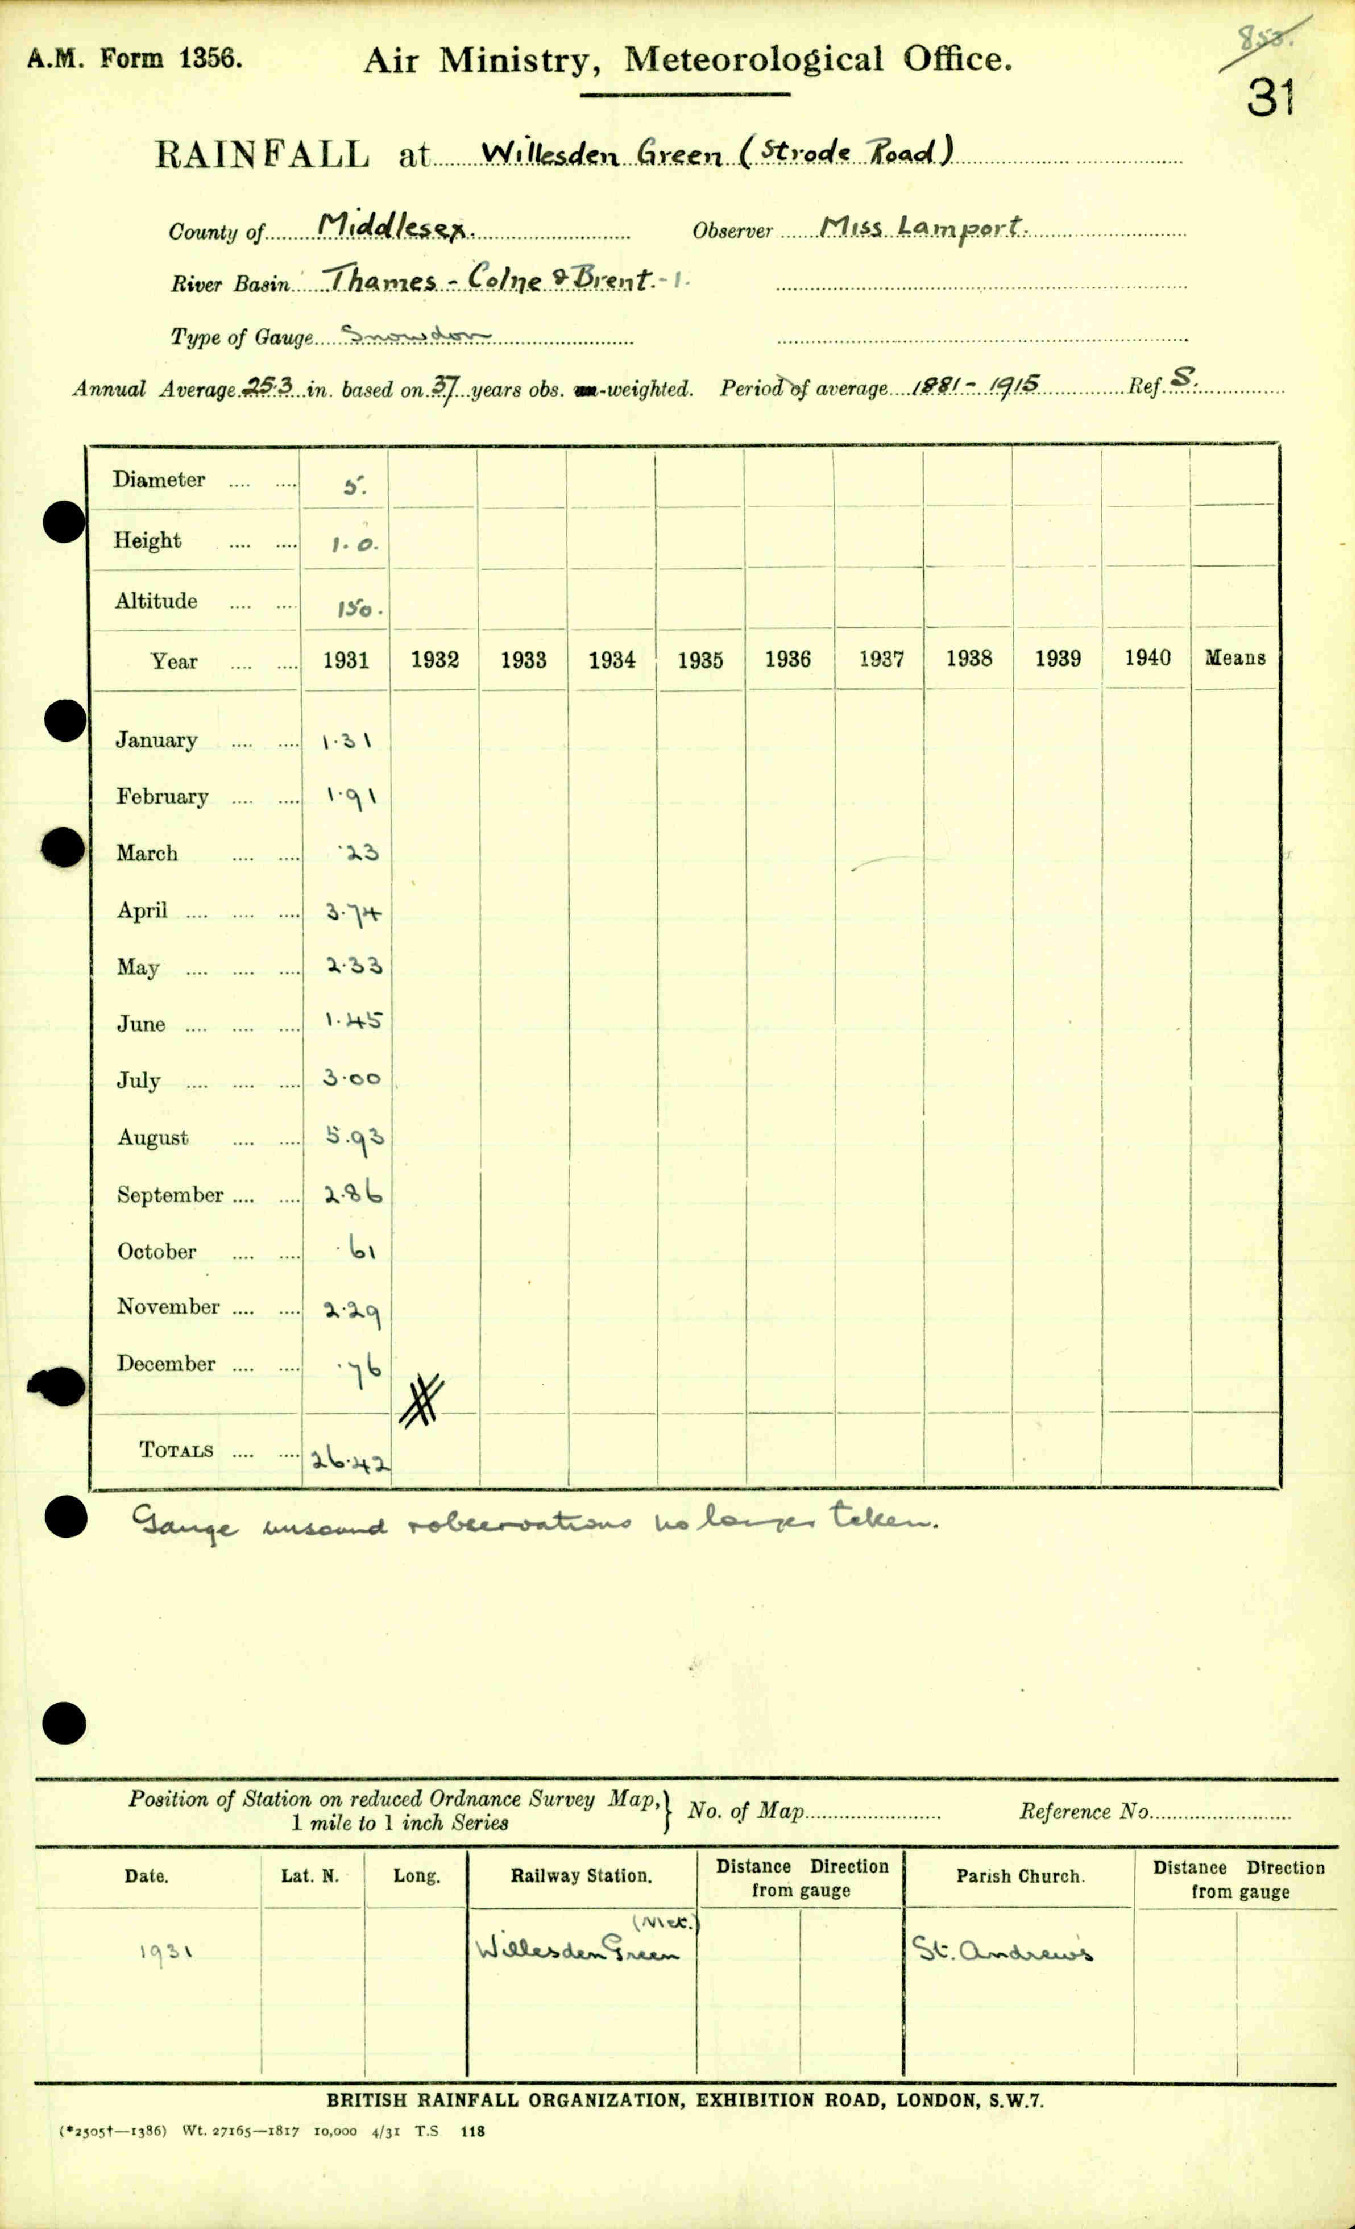 850.
A.M. Form 1356. Air Ministry, Meteorological Office.
31
RAINFALL at Willesden Green (Strode Road)
County of Middlesex. Observer Miss Lamport.
River Basin Thames - Colne & Brent.-1.
Type of Gauge Snowdon
Annual Average 25.3 in. based on 37 years obs. un-weighted. Period of average 1881 - 1915 Ref. S.
Diameter .... .... 5.
Height .... .... 1.0.
Altitude .... .... 150.
Year .... .... 1931 1932 1933 1934 1935 1936 1937 1938 1939 1940 Means
January .... .... 1.31
February .... .... 1.91
March .... .... .23
April .... .... .... 3.74
May .... .... .... 2.33
June .... .... .... 1.45
July .... .... .... 3.00
August .... .... 5.93
September .... .... 2.86
October .... .... .61
November .... .... 2.29
December .... .... .76
TOTALS .... .... 26.42
Gauge unsound & observations no longer taken.
Position of Station on reduced Ordnance Survey Map,} No. of Map Reference No.
1 mile to 1 inch Series
Date. Lat. N. Long. Railway Station. Distance Direction from gauge Parish Church. Distance Direction from gauge
(Met.)
1931 Willesden Green St. Andrew's
BRITISH RAINFALL ORGANIZATION, EXHIBITION ROAD, LONDON, S.W.7.
(*2505†—1386) Wt. 27165—1817 10,000 4/31 T.S 118